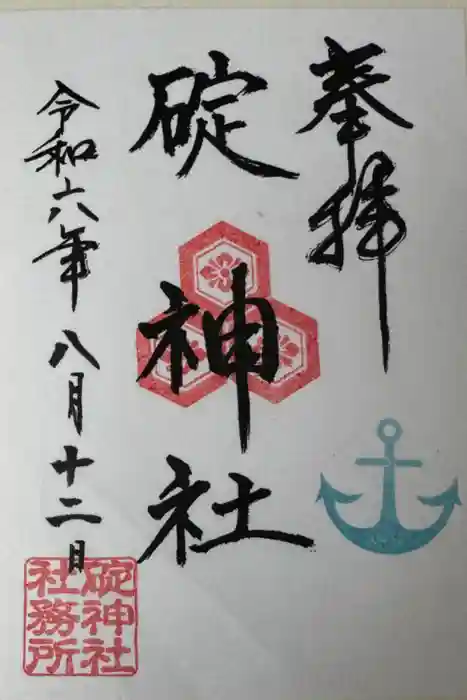 奉拝
碇神社
令和六年八月十二日
碇神社
社務所